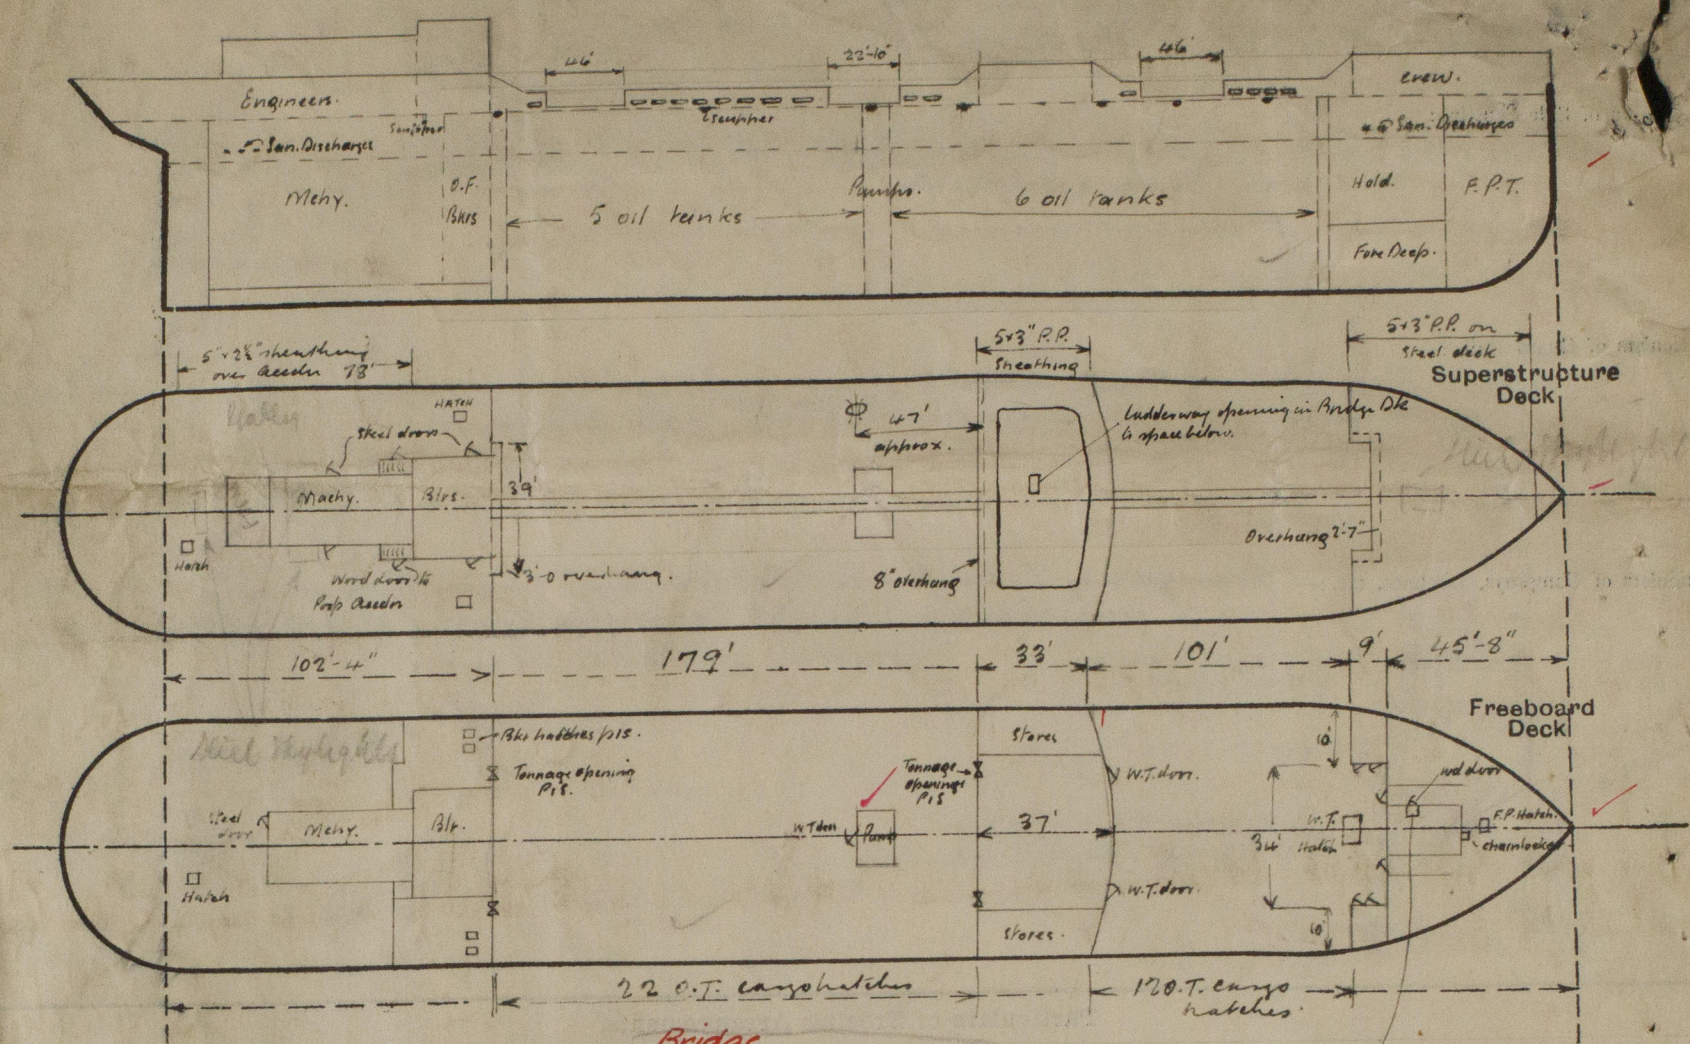 46'
22'-10"
46'
Engineers.
crew.
scupper
San. Discharges
San. Discharges
Mchy.
O.F.
Bkrs
5 oil tanks
Pumps.
6 oil tanks
Hold.
F.P.T.
Fore Deep.
5"x2½" sheathing
over Accdn 78'
5x3" P.P.
Sheathing
5x3" P.P. on
Steel deck
Superstructure
Deck
Galley
HATCH
Steel doors
47'
approx.
Ladderway opening in Bridge Dk
to space below.
Machy.
Blrs.
39'
Hatch
Wood doors to
Poop Accdn
3'-0 overhang.
8" overhang
Overhang 2'-7"
102'-4"
179'
33'
101'
9'
45'-8"
Freeboard
Deck
Bkr hatches p/s.
Stores
Tonnage opening
P/S.
Tonnage
openings
P/S
W.T. door.
10'
wd door
Steel
door
Mchy.
Blr.
W T door
Pump
37'
34'
W.T.
Hatch
F.P. Hatch.
chain locker
Hatch
W.T. door.
Stores.
10'
22 O.T. cargo hatches
12 O.T. cargo
hatches.
Bridge